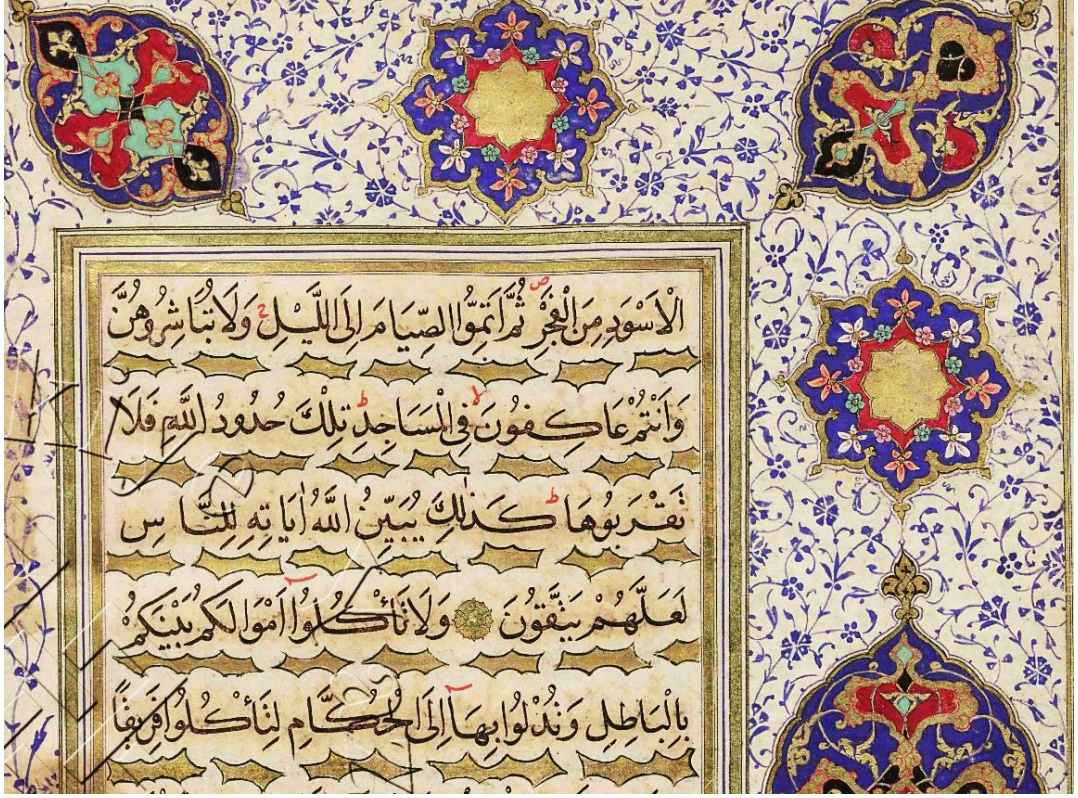 الْاَسْوَدِ مِنَ الْفَجْرِ ۖ ثُمَّ اَتِمُّوا الصِّيَامَ اِلَى اللَّيْلِ ۚ وَلَا تُبَاشِرُوهُنَّ
وَاَنْتُمْ عَاكِفُونَ ۙ فِي الْمَسَاجِدِ ۜ تِلْكَ حُدُودُ اللّٰهِ فَلَا
تَقْرَبُوهَا ۜ كَذٰلِكَ يُبَيِّنُ اللّٰهُ اٰيَاتِهِ لِلنَّاسِ
لَعَلَّهُمْ يَتَّقُونَ ۝ وَلَا تَأْكُلُوٓا اَمْوَالَكُمْ بَيْنَكُمْ
بِالْبَاطِلِ وَتُدْلُوا بِهَٓا اِلَى الْحُكَّامِ لِتَأْكُلُوا فَرِيقًا